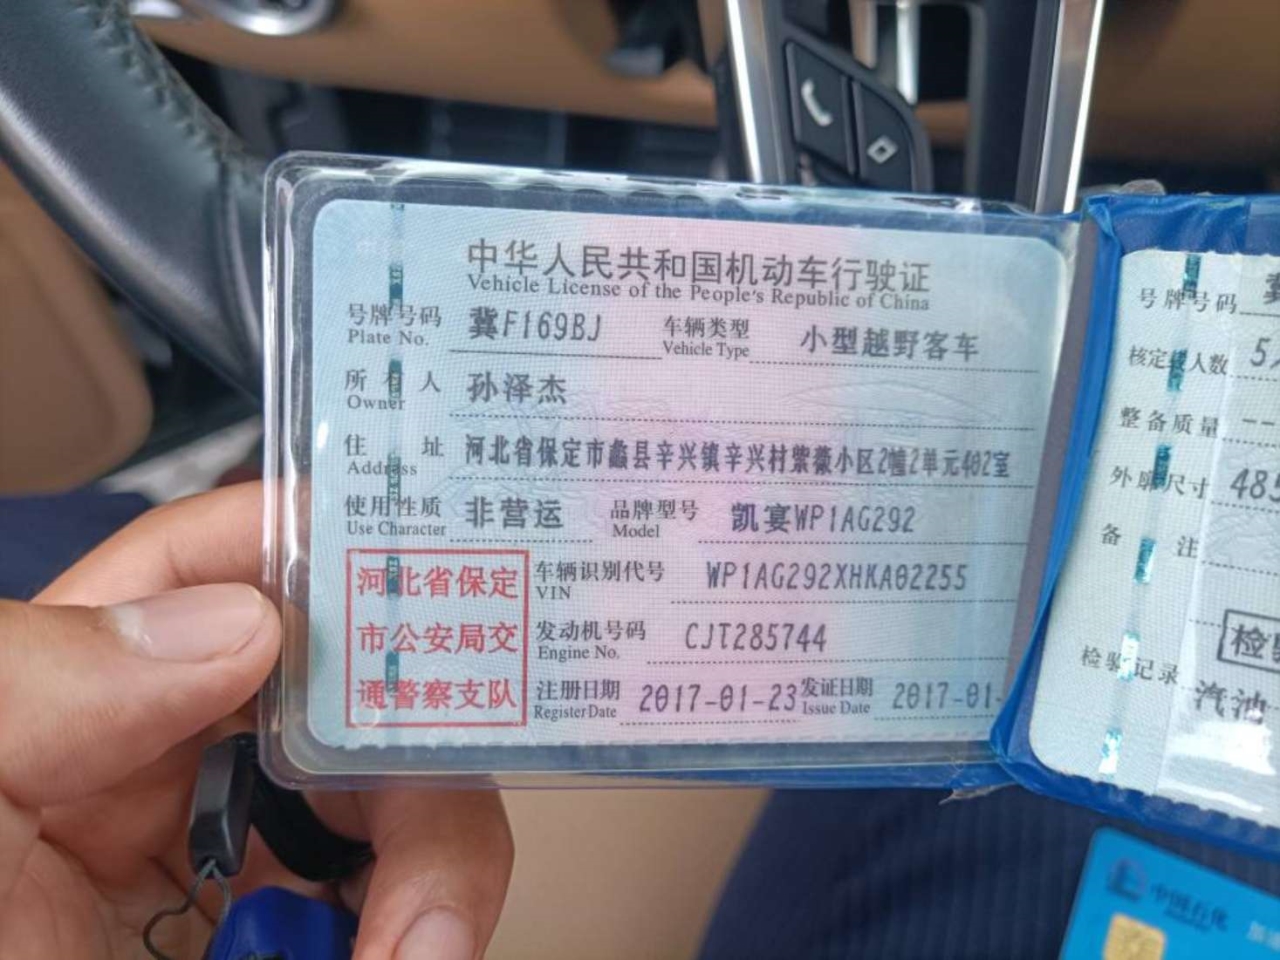 中华人民共和国机动车行驶证
Vehicle License of the People's Republic of China
号牌号码 冀F169BJ 车辆类型 小型越野客车
Plate No. Vehicle Type
所有人 孙泽杰
Owner
住址 河北省保定市蠡县辛兴镇辛兴村紫薇小区2幢2单元402室
Address
使用性质 非营运 品牌型号 凯宴WP1AG292
Use Character Model
河北省保定
市公安局交
通警察支队
车辆识别代号 WP1AG292XHKA02255
VIN
发动机号码 CJT285744
Engine No.
注册日期 2017-01-23 发证日期 2017-01-
Register Date Issue Date
号牌号码
核定载人数 5
整备质量 --
外廓尺寸 485
备注
检
检验记录
汽油
中国石化